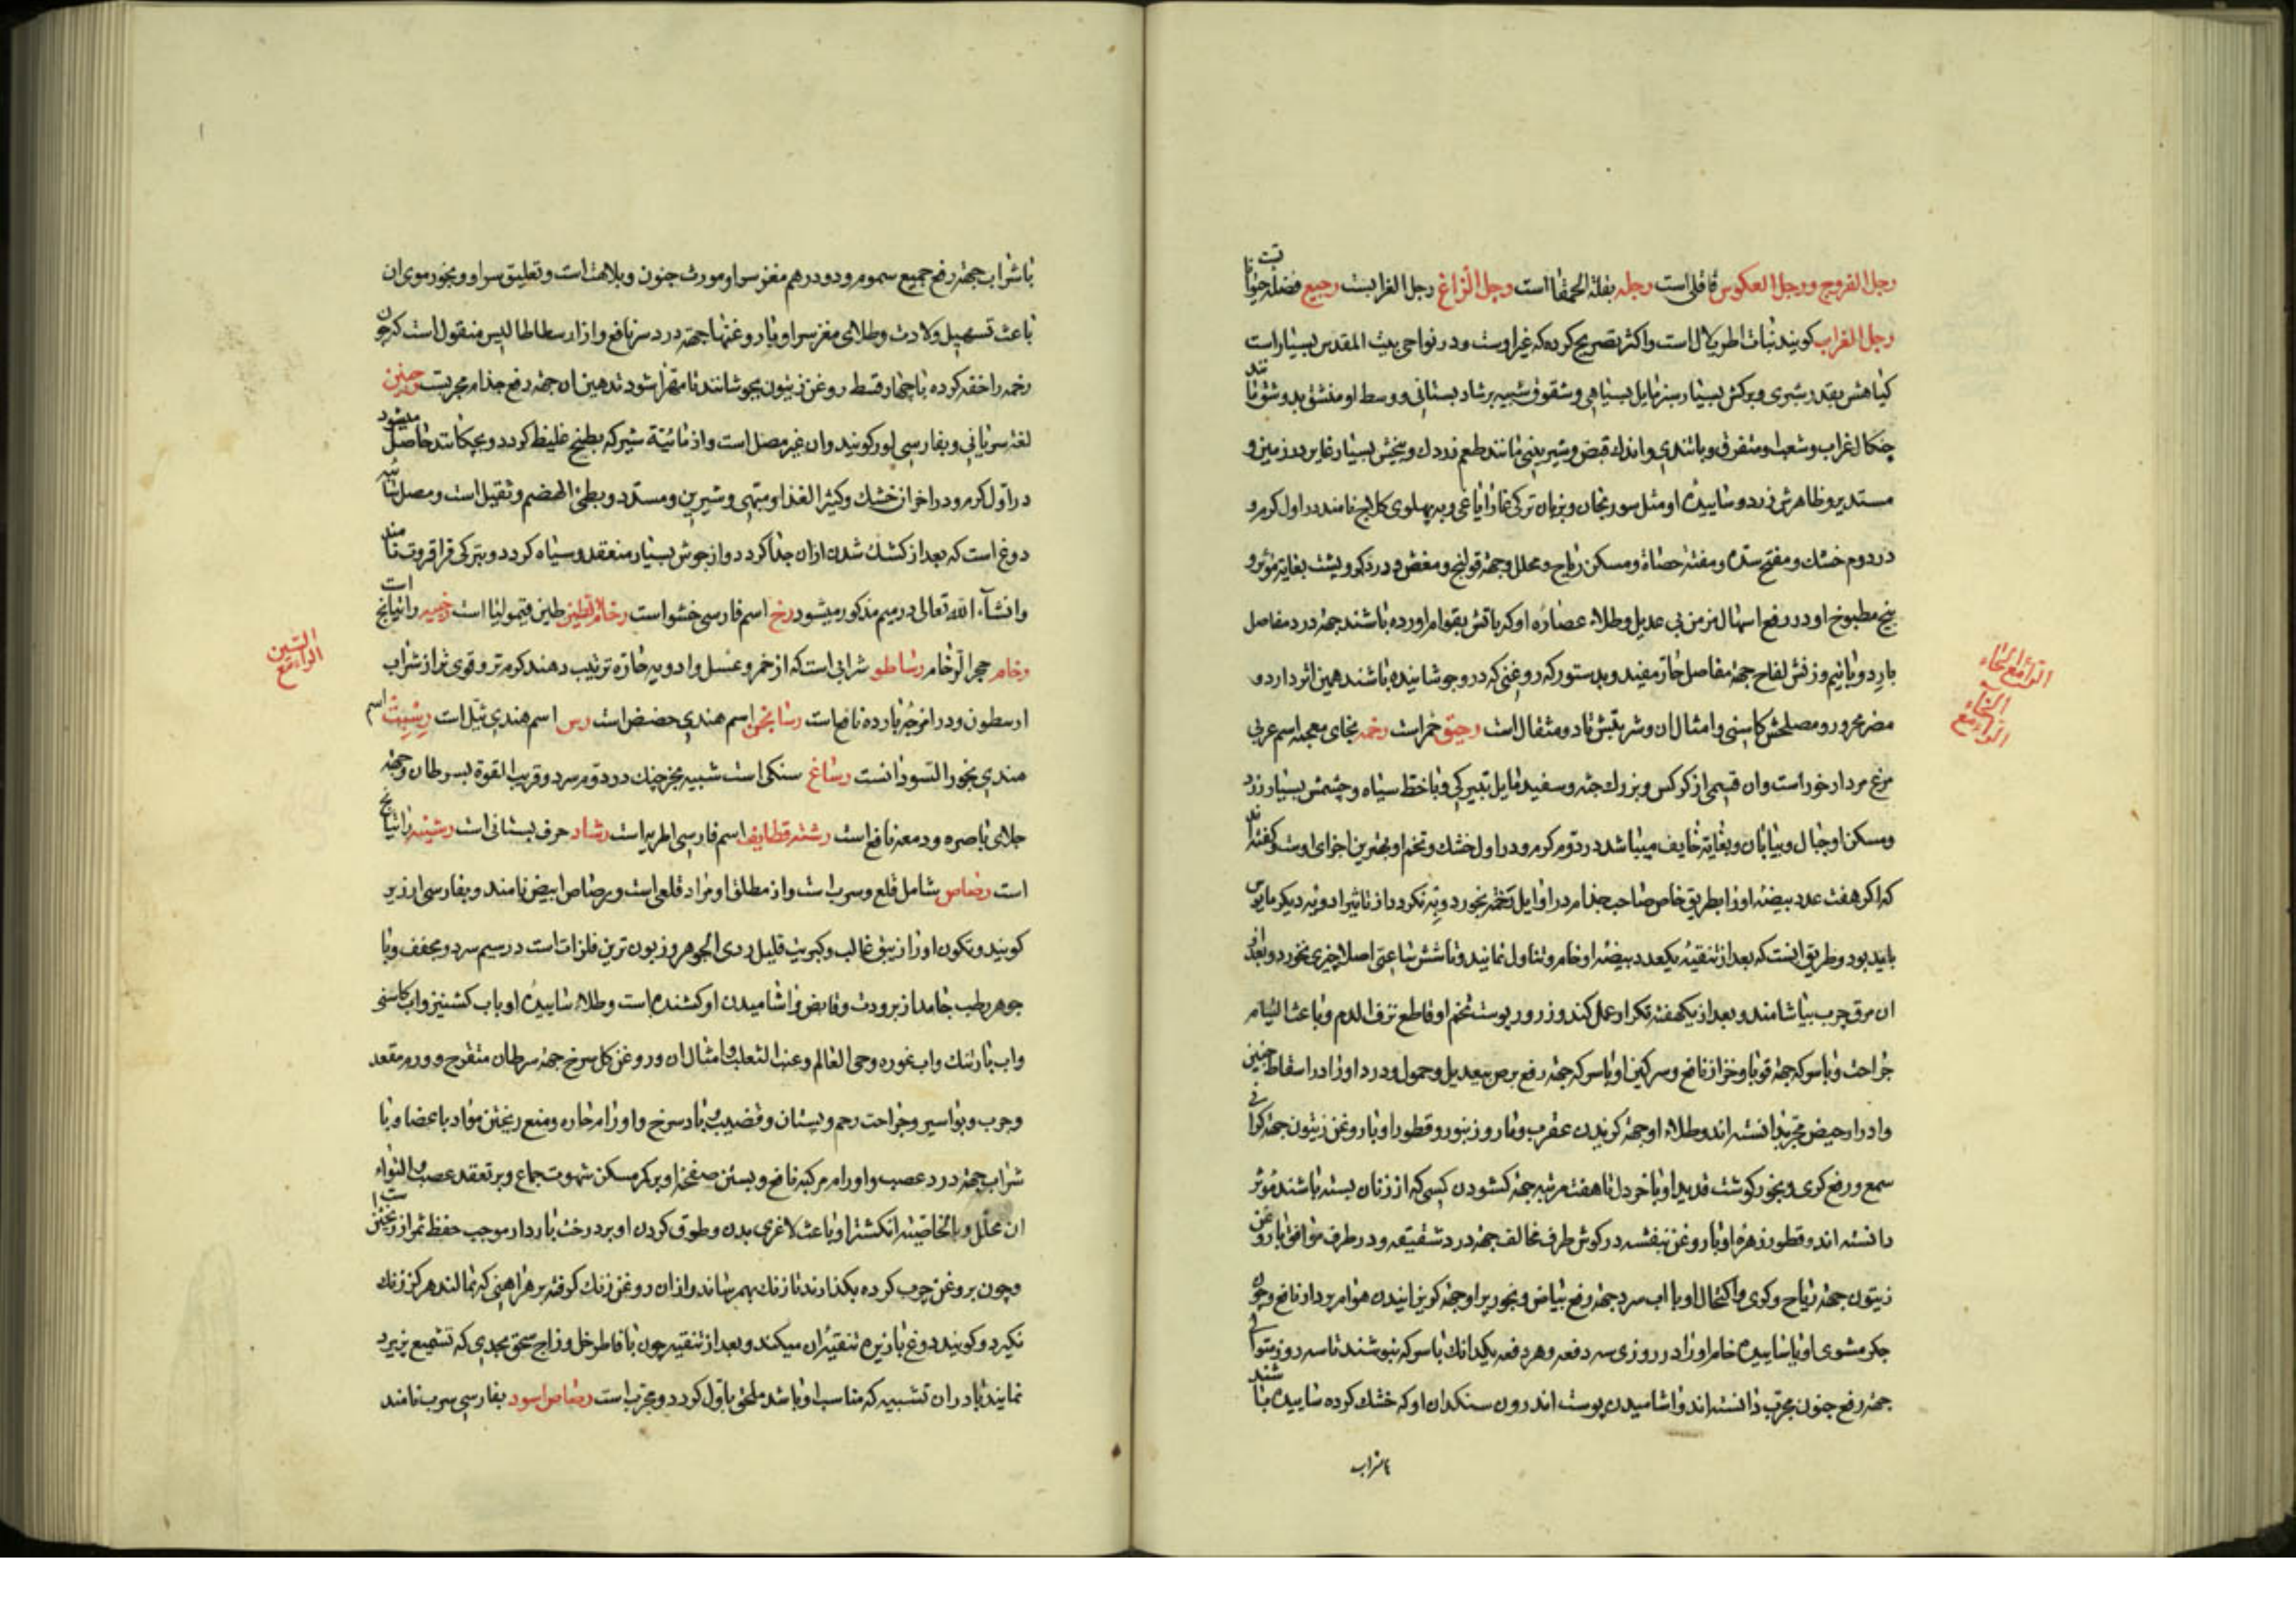 رجل الفروج ورجل العكوس قاقلی است رجله بقلة الحمقا است ورجل الزاغ رجل الغرابست رجیع فضله حیوانات
رجل الغراب کویند نبات اطریلال است واکثر تصریح کرده که غیر اوست ودر نواحی بیت المقدس بسیار است
کیاهش بقدر شبری وبرکش بسیار سبز مایل بسیاهی وشقوق شبیه برشاد بستانی ووسط او منشق بدو شق مانند
چنکال غراب وشعب او متفرق وباتندی واندك قبض وشیرینی مانند طعم زردك وبیخش بسیار غایر در زمین و
مستدیر وظاهرش زرد وساییدهٔ او مثل سورنجان وبزبان ترکی غازایاغی وبدیهلوی کلاج نامند در اول کرم و
در دوم خشك ومفتح سده ومفتت حصاة ومسکن ریاح ومحلل وجهة قولنج ومغص ودرد کمر وپشت بغایة مؤثر و
بیخ مطبوخ او در رفع اسهال مزمن بی عدیل وطلاء عصارهٔ او که باتش بقوام اورده باشند جهة درد مفاصل
بارد وبانیم وزنش لفاح جهة مفاصل حار مفید وبدستور که روغنی که در وجوشانیده باشند همین اثر دارد و
مضر محرور ومصلحش کاسنی وامثال ان وشربتش تا دو مثقال است رحیق خمر است رخمه بخای معجمه اسم عربی
مرغ مردار خوار است وان قسمی از کرکس وبزرك جثه وسفید مایل بتیرکی وباخطط سیاه وچشمش بسیار زرد
ومسکن او جبال وبیابان وبغایة خایف میباشد در دوم کرم ودر اول خشك وتخم او بهترین اجزای اوست وکفته اند
که اکر هفت عدد بیضه او را بطریق خاص صاحب جذام در اوایل بخورد وبه نکردد از تاثیر ادویه دیکر مایوس
باید بود وطریق انست که بعد از تنقیه یکعدد بیضه او خام وتناول نمایند وتا شش ساعتی اصلا چیزی نخورد وبعد از
ان مرق چرب بیاشامند وبعد از یکهفته تکرار عمل کند وذرور پوست تخم او قاطع نزف الدم وباعث التیام
جراحت وباسرکه جهة قوبا وخزاز نافع وسرکین او باسرکه جهة رفع برص بیعدیل وحمول ودرد او زا در اسقاط جنین
وادرار حیض مجرب دانسته اند وطلاء او جهة کزیدن عقرب ومار وزنبور وقطور او با روغن زیتون جهة کرانی
سمع ورفع کری وبخور کوشت قدید او باخردل تا هفت مرتبه جهة کشودن کسی که از زنان بسته باشند مؤثر
دانسته اند وقطور زهرهٔ او با روغن بنفشه در کوش طرف مخالف جهة درد شقیقه ودر طرف موافق با روغن
زیتون جهة ریاح وکری واکتحال او با اب سرد جهة رفع بیاض وبخور پر او جهة کریزانیدن هوام بردار نافع وچون
جکر مشوی او یا ساییده خام او را در روزی سه دفعه وهر دفعه یکدانك باسرکه بنوشند تا سه روز متوالی
جهة رفع جنون مجرب دانسته اند واشامیدن پوست اندرون سنکدان او که خشك کرده ساییده باشند
باشراب
الرآء مع الحاء
الرآء مع الخاء
باشراب جهة رفع جمیع سموم ودو درهم مغز سر او مورث جنون وبلاهت است وتعلیق سر او وبخور موی ان
باعث تسهیل ولادت وطلای مغز سر او با روغنها جهة درد سر نافع واز ارسطاطالیس منقول است که چون
رخمه را خفه کرده با چهار قسط روغن زیتون بجوشانند تا مهرا شود تدهین ان جهة رفع جذام مجربست رخبین
لغة سریانی وبفارسی لور کویند وان غیر مصل است واز مائیة شیر که بطبخ غلیظ کردد وبچکانند حاصل میشود
در اول کرم ودر اخر ان خشك وکثیر الغذا ومبهی وشیرین ومسدد وبطئ الهضم وثقیل است ومصل
دوغ است که بعد از کشك شدن ازان جدا کردد واز جوش بسیار منعقد وسیاه کردد وبترکی قراقروت نامند
وانشآء الله تعالی در میم مذکور میشود رخ اسم فارسی خشو است رخام الطین طین قیمولیا است رخبیه راتیانج است
رخام حجر الرخام رساطو شرابی است که از خمر وعسل وادویه حاره ترتیب دهند کرم تر وقوی تر از شراب
ارسطون ودر امزجه بارده نافع است رسانجن اسم هندی حضض است رس اسم هندی نیل است رسبت اسم
هندی بخور السودانست رساغ سنکی است شبیه بخرچنك در دوم سرد وقریب القوة بسرطان وجهة
جلای باصره ودمعه نافع است رشته قطایف اسم فارسی اطریه است رشاد حرف بستانی است رشینه راتیانج
است رصاص شامل قلع وسرب است واز مطلق او مراد قلعی است وبرصاص ابیض نامند وبفارسی ارزیز
کویند وتکون او از زیبق غالب وکبریت قلیل ردی الجوهر وزبون ترین فلزات است در سیم سرد ومجفف وبا
جوهر رطب جامد از برودت وقابض واشامیدن او کشنده است وطلاء ساییدهٔ او باب کشنیز واب کاسنی
واب بارتنك واب غوره وحی العالم وعنب الثعلب وامثال ان وروغن کل سرخ جهة سرطان متقرح وورم مقعد
وجرب وبواسیر وجراحت رحم وپستان وقضیب وباد سرخ واورام حاره ومنع ریختن مواد باعضا وبا
شراب جهة درد عصب واورام مرکبه نافع وبستن صفحهٔ او بر کمر مسکن شهوت جماع وبر تعقد عصب والتواء
ان محلل وبالخاصیة انکشتر او باعث لاغری بدن وطوق کردن او بر درخت باردار موجب حفظ ثمر از ریختن است
وچون بروغن چرب کرده بکذارند تا زنك بهم رساند وازان روغن زنك کوفته بر هر اهنی که بمالند هرکز زنك
نکیرد وکویند دوغ با زیره تنقیهٔ ان میکند وبعد از تنقیه چون با فاطر خل وزاج سحق بحدی که تشمیع پزیرد
نمایند یا در ان تشبیه که مناسب او باشد ملحق باول کردد ومجرب است رصاص اسود بفارسی سرب نامند
الراء مع السین